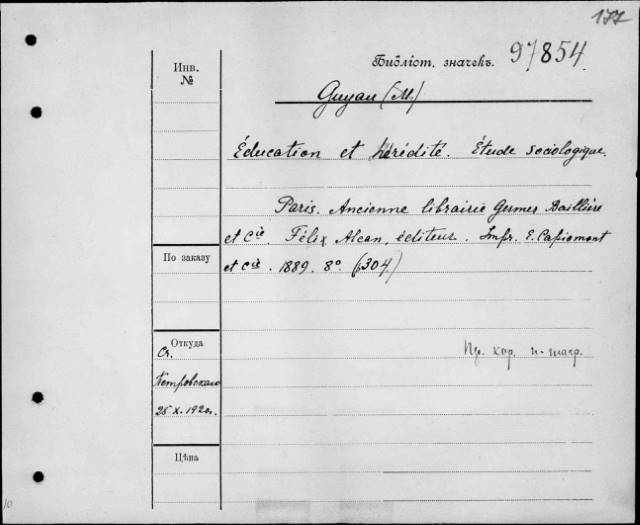 177
Библіот. значекъ. 97854
Инв.
№
Guyau (M.)
Éducation et hérédité. Étude sociologique.
Paris. Ancienne librairie Germer Baillière
et Cie. Félix Alcan, éditeur. Impr. E. Capiomont
et Cie. 1889. 8º. (304)
По заказу
Откуда
Ст.
Петровскаго
25 X. 192
Цѣна
10